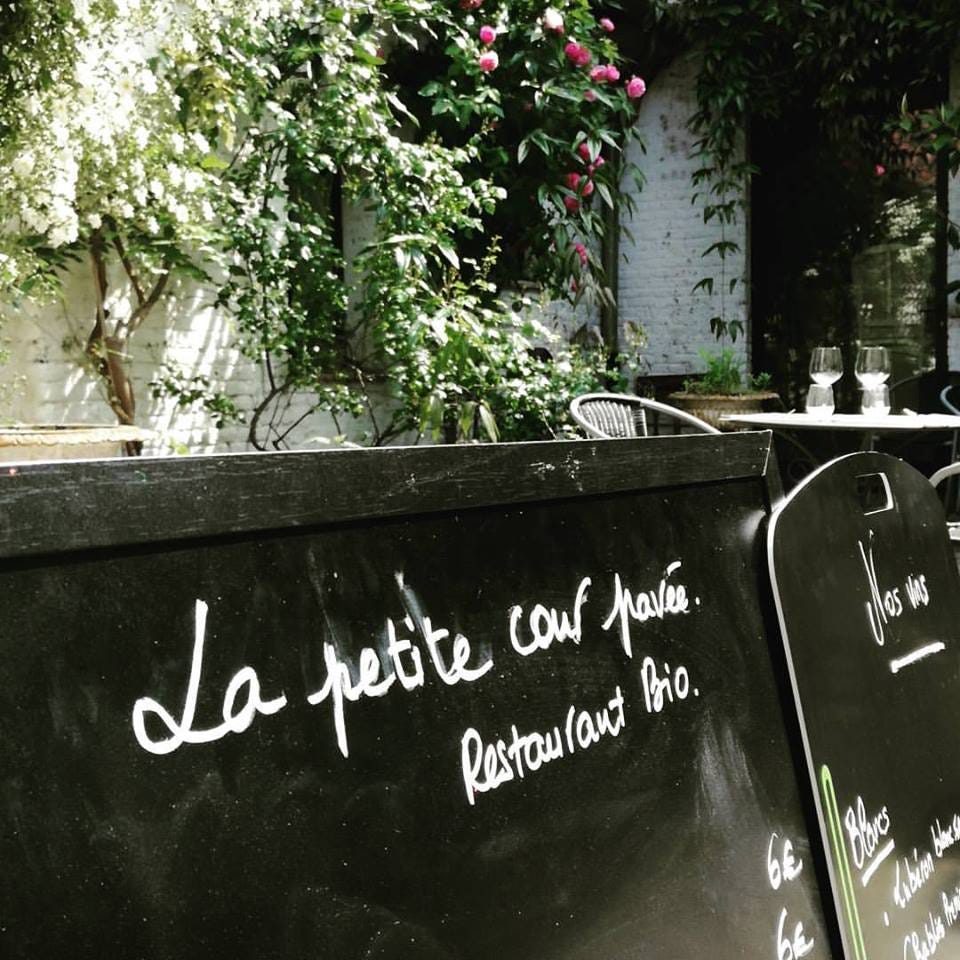 La petite cour pavée.
Restaurant Bio.
6€
6€
Nos vins
Blancs
. Lubéron blanc
Chablis